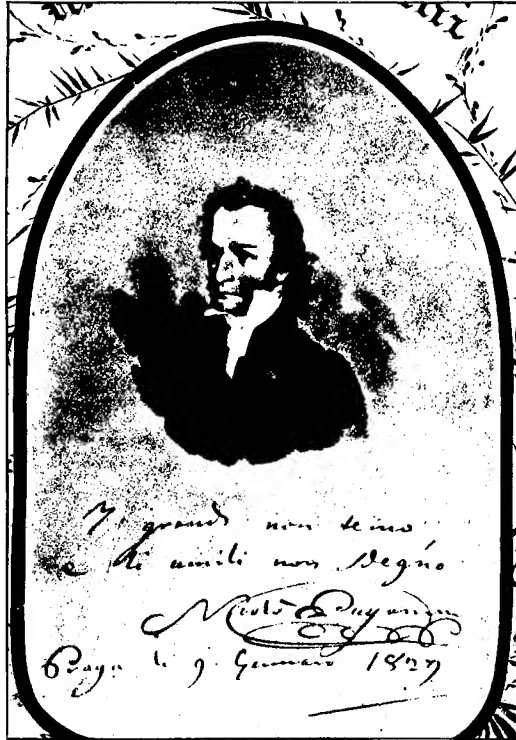 I grandi non temo
e gli umili non sdegno
Nicolò Paganini
Praga li 9 Gennaro 1829